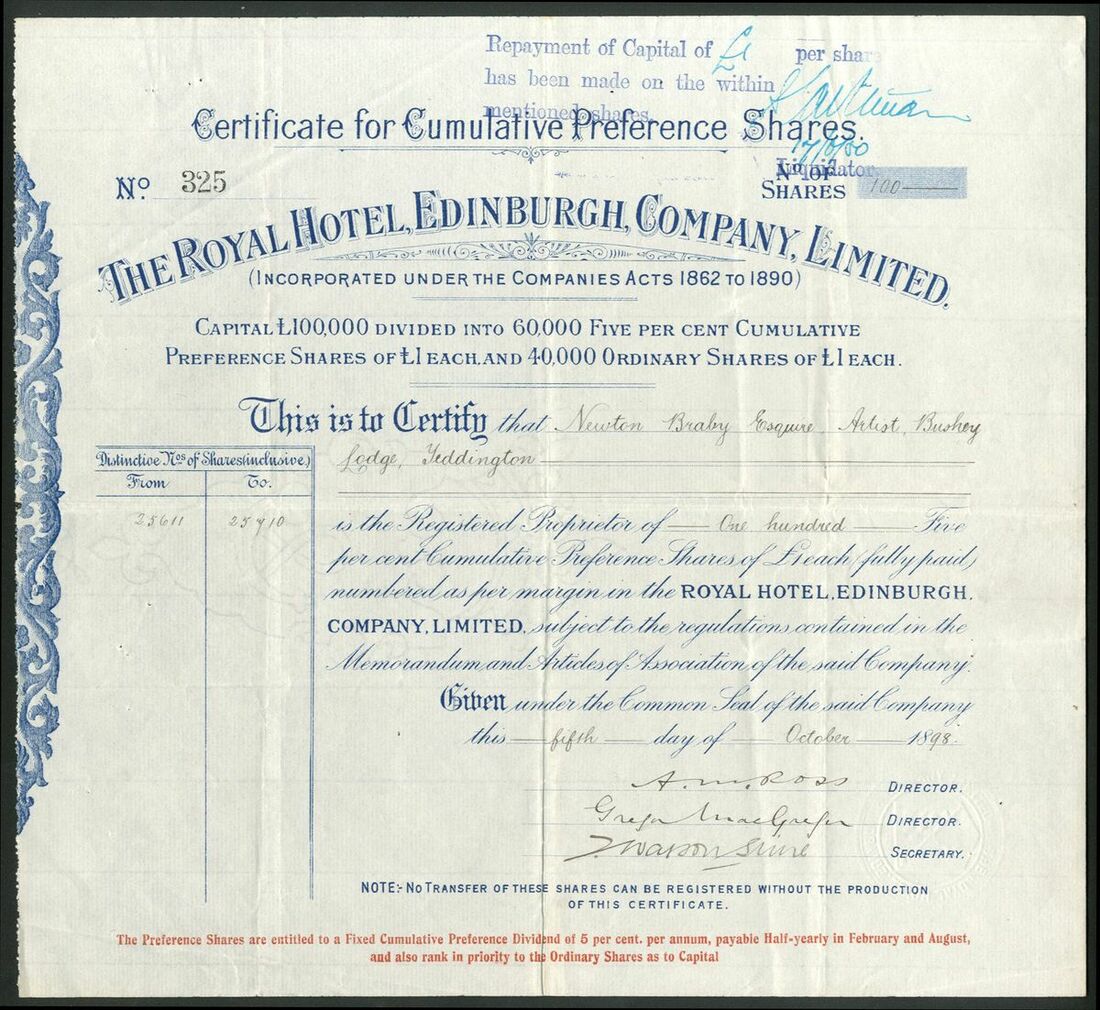 Repayment of Capital of £1 per share
has been made on the within
mentioned shares.
Certificate for Cumulative Preference Shares.
17/8/50
Liquidator
No. 325
No OF SHARES 100
THE ROYAL HOTEL, EDINBURGH, COMPANY, LIMITED.
(INCORPORATED UNDER THE COMPANIES ACTS 1862 TO 1890)
CAPITAL £100,000 DIVIDED INTO 60,000 FIVE PER CENT CUMULATIVE
PREFERENCE SHARES OF £1 EACH, AND 40,000 ORDINARY SHARES OF £1 EACH.
This is to Certify that Newton Braby Esquire, Artist, Bushey
Lodge, Teddington
Distinctive Nos of Shares (inclusive.)
From To.
25611 25710
is the Registered Proprietor of One hundred Five
per cent Cumulative Preference Shares of £1 each (fully paid)
numbered as per margin in the ROYAL HOTEL, EDINBURGH,
COMPANY, LIMITED, subject to the regulations contained in the
Memorandum and Articles of Association of the said Company.
Given under the Common Seal of the said Company
this fifth day of October 1898.
A. M. Ross DIRECTOR.
Gregor MacGregor DIRECTOR.
SECRETARY.
NOTE:- NO TRANSFER OF THESE SHARES CAN BE REGISTERED WITHOUT THE PRODUCTION
OF THIS CERTIFICATE.
The Preference Shares are entitled to a Fixed Cumulative Preference Dividend of 5 per cent. per annum, payable Half-yearly in February and August,
and also rank in priority to the Ordinary Shares as to Capital